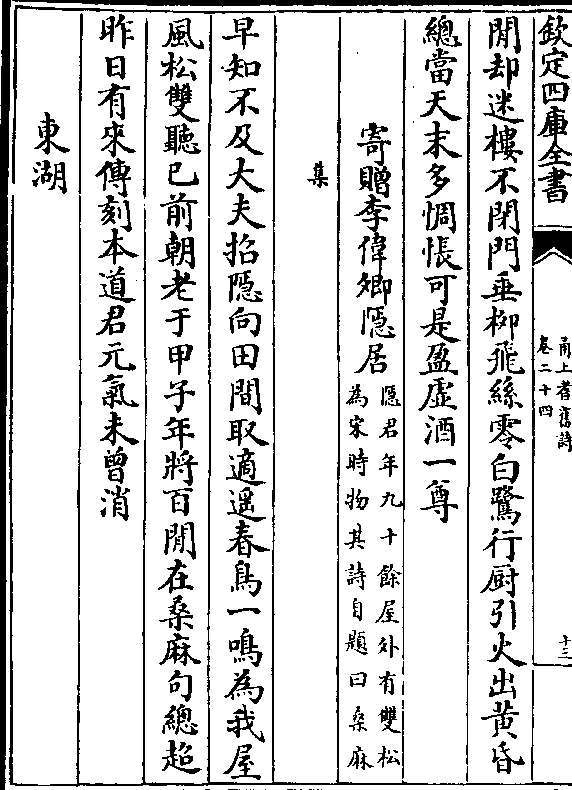 欽定四庫全書
甬上耆舊詩
卷二十四
十三
閒却迷樓不閉門垂柳飛絲零白鷺行厨引火出黃昏
總當天末多惆悵可是盈虛酒一尊
寄贈李偉卿隱居
隱君年九十餘屋外有雙松
為宋時物其詩自題曰桑麻
集
早知不及大夫招隱向田間取適遥春鳥一鳴為我屋
風松雙聽已前朝老于甲子年將百閒在桑麻句總超
昨日有來傳刻本道君元氣未曾消
東湖